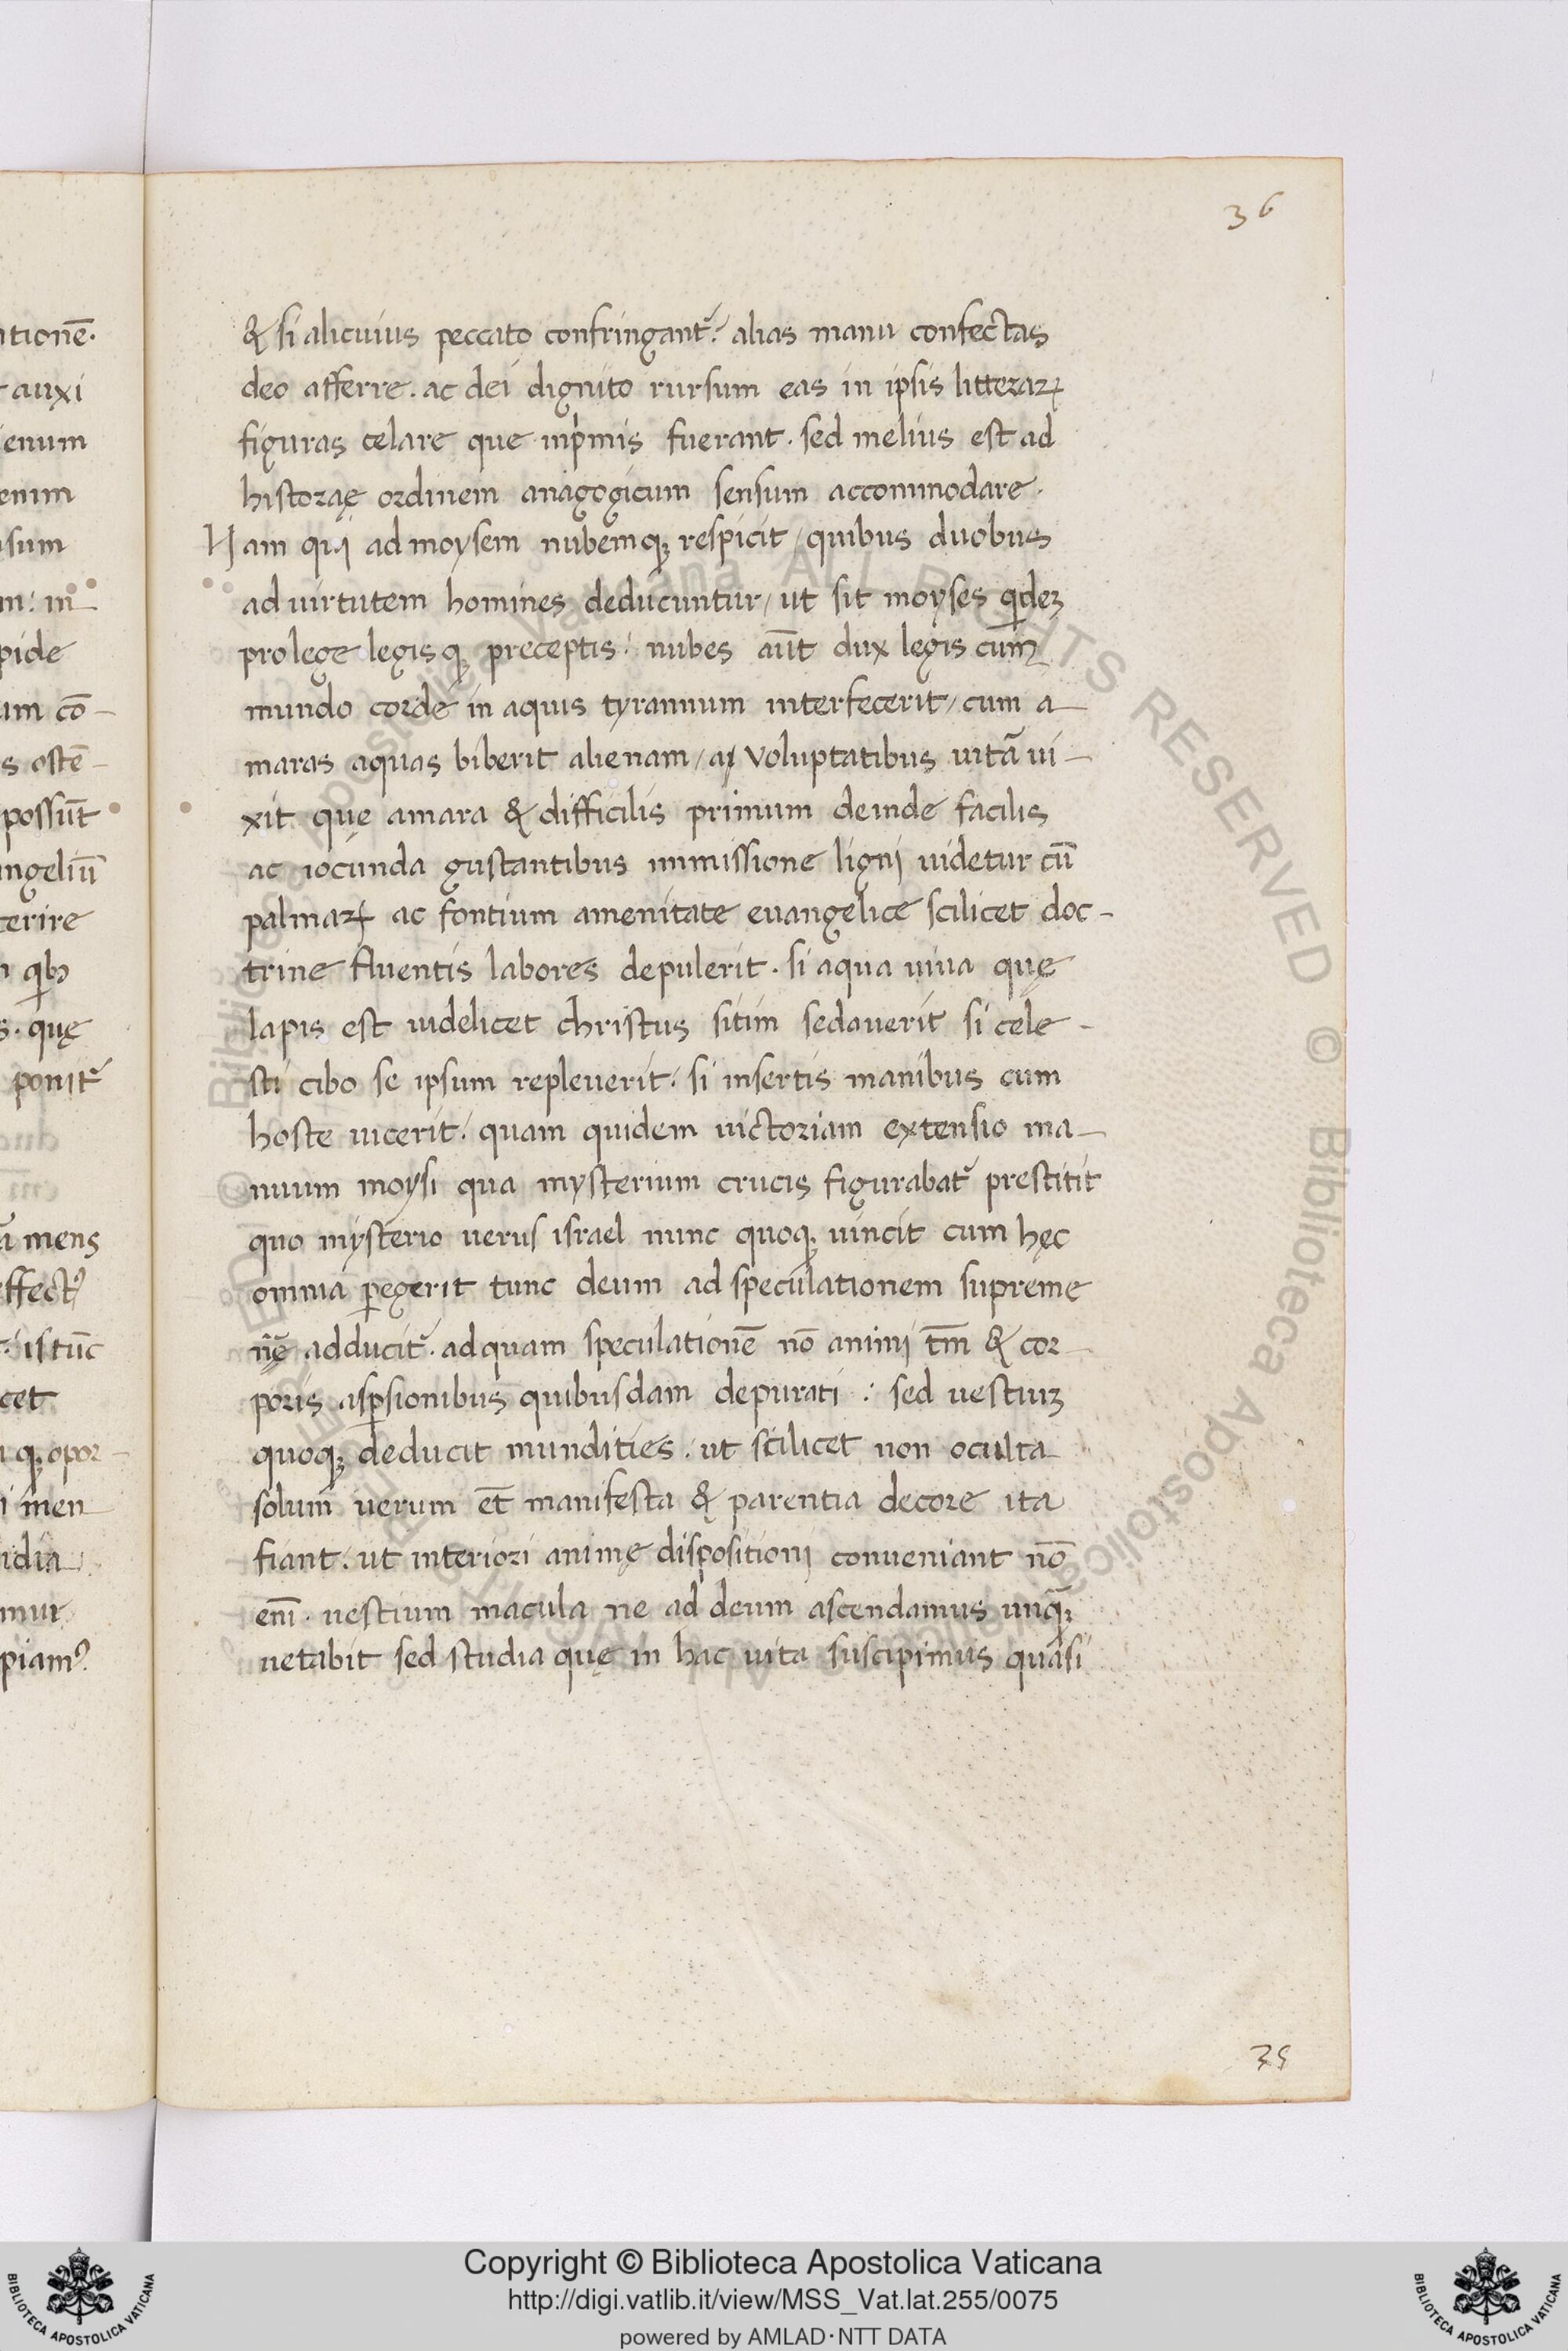 36
& si alicuius peccato confringant᷑. alias manu confectas
deo afferre. ac dei dignito rursum eas in ipsis litteraꝝ
figuras celare que inpͥmis fuerant. sed melius est ad
histoꝛaę oꝛdinem anagogicum sensum accommodare.
Nam quj ad moysem nubemqꝫ respicit / quibus duobus
ad uirtutem homines deducuntur / ut sit moyses qͥdeꝫ
pro lege legisqꝫ preceptis: nubes aūt dux legis cum
mundo coꝛde in aquis tyrannum interfecerit / cum a-
maras aquas biberit alienam / aj voluptatibus uitā ui-
xit que amara & difficilis primum deinde facilis
ac iocunda gustantibus immissione lignj uidetur cū
palmaꝝ ac fontium amenitate euangelice scilicet doc-
trine fluentis labores depulerit. si aqua uiua quę
lapis est uidelicet christus sitim sedauerit si cele-
sti cibo se ipsum repleuerit. si insertis manibus cum
hoste uicerit. quam quidem uictoꝛiam extensio ma-
nuum moysi qua mysterium crucis figurabat᷑ prestitit
quo mysterio uerus israel nunc quoqꝫ uincit cum hęc
omnia ꝑegerit tunc deum ad speculationem supreme
nr̄ę adducit᷑. ad quam speculationē nō animj tm̄ & coꝛ-
poꝛis aspsionibus quibusdam depurati: sed uestiuꝫ
quoqꝫ deducit mundities. ut scilicet non oculta
solum uerum et̄ manifesta & parentia decoꝛe ita
fiant. ut interioꝛi animę dispositionj conueniant nō
enī. uestium macula ne ad deum ascendamus unqꝫ
uetabit sed studia quę in hac uita suscipimus quasi
35
ntionē.
auxi
ienum
enim
sum
pide
um cō-
s ostē-
possūt
angeliū
terire
s. quę
ponit᷑
mens
istūc
cet
men
idia
mur
Copyright © Biblioteca Apostolica Vaticana
http://digi.vatlib.it/view/MSS_Vat.lat.255/0075
powered by AMLAD·NTT DATA
BIBLIOTECA APOSTOLICA VATICANA
BIBLIOTECA APOSTOLICA VATICANA